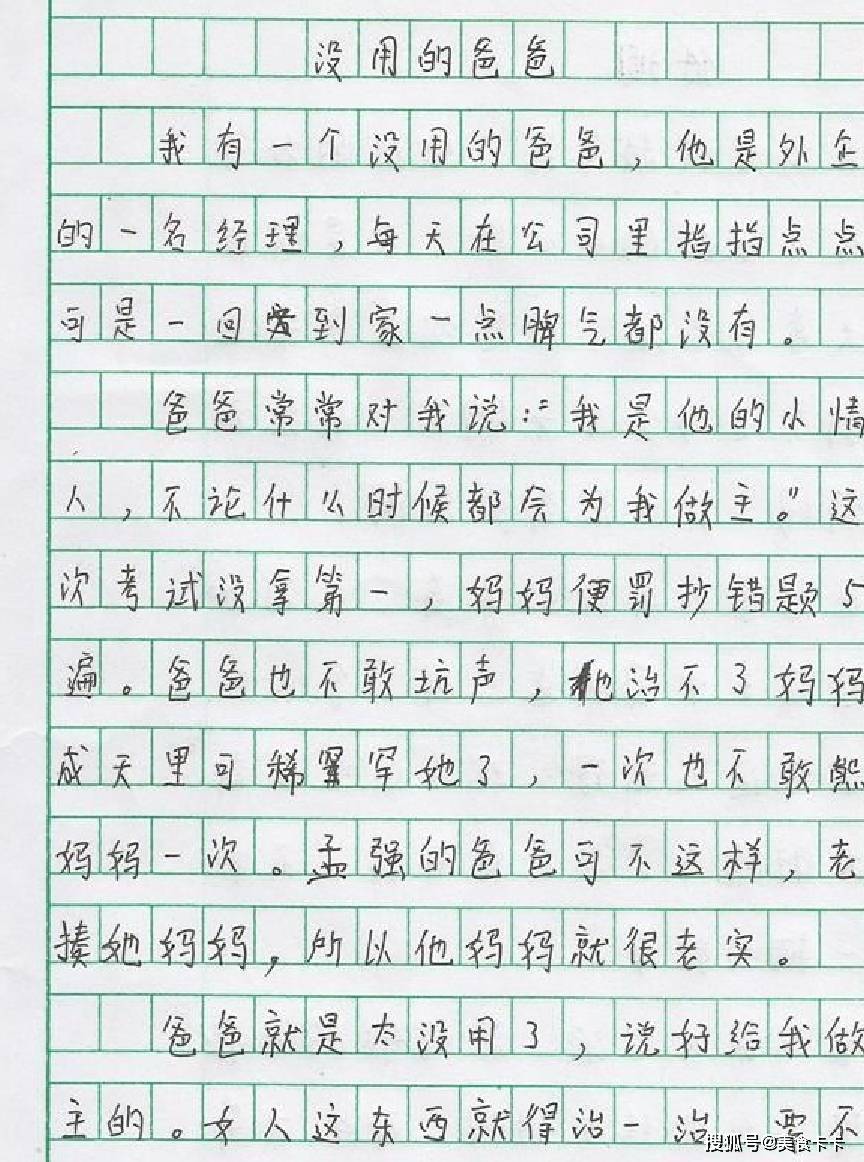 没用的爸爸
我有一个没用的爸爸，他是外企
的一名经理，每天在公司里指指点点
可是一回到家一点脾气都没有。
爸爸常常对我说:“我是他的小情
人，不论什么时候都会为我做主。”这
次考试没拿第一，妈妈便罚抄错题5
遍。爸爸也不敢坑声，他治不了妈妈
成天里可稀罕她了，一次也不敢熊
妈妈一次。孟强的爸爸可不这样，老
揍她妈妈，所以他妈妈就很老实。
爸爸就是太没用了，说好给我做
主的。女人这东西就得治一治 要不
搜狐号@美食卡卡